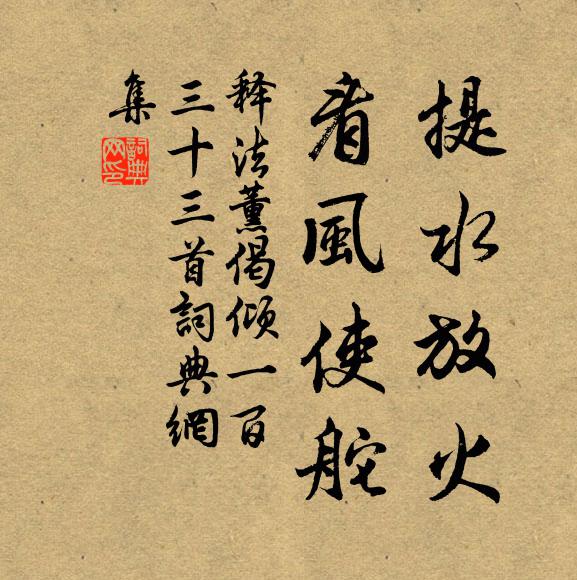 提水放火
看風使舵
释法薰偈倾一百
三十三首詞典網
集
詞典
网印